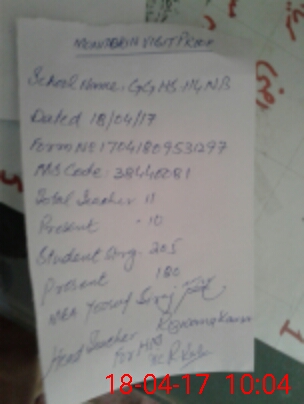 MONITORIN VISIT PROOF
School Name: GGHS 114 NB
Dated 18/04/17
Form NO 17041809531297
MS Code: 38440081
Total Teacher 11
Present 10
Student Strg: 205
Present 180
MEA Yousuf Siraj
Head Teacher Rizwana Kausar
for HM
18-04-17 10:04